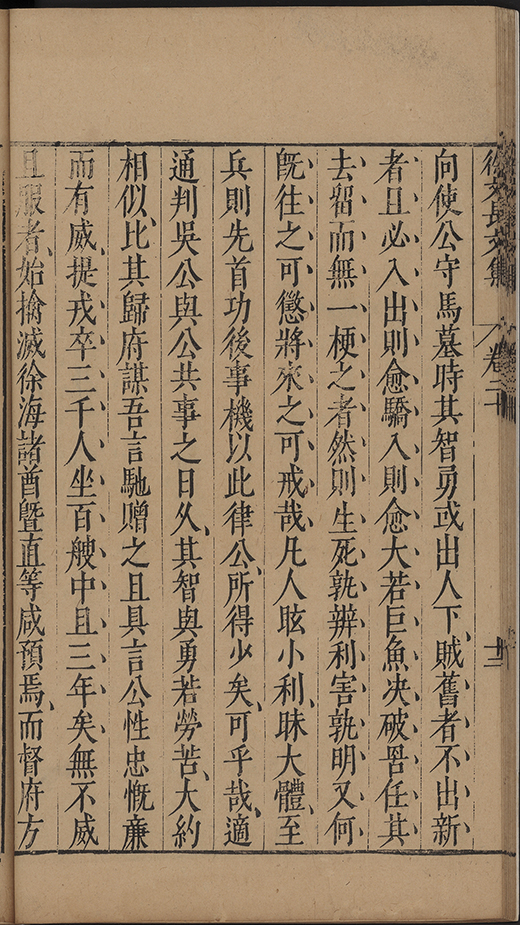 徐文長文集 卷二 十三
向使公守馬墓時其智勇或出人下、賊舊者不出新
者且必入出則愈驕入則愈大若巨魚决破罟任其
去留而無一梗之者然則生死孰辨利害孰明又何
旣往之可懲將來之可戒哉凡人眩小利、昧大體、至
兵則先首功後事機以此律公、所得少矣、可乎哉、適
通判吳公與公共事之日久、其智與勇若勞苦、大約
相似、比其歸府謀吾言馳贈之且具言公性忠慨亷
而有威、提戎卒三千人坐百艘中且三年矣無不威
且服者、始擒滅徐海諸酋曁直等咸預焉、而督府方